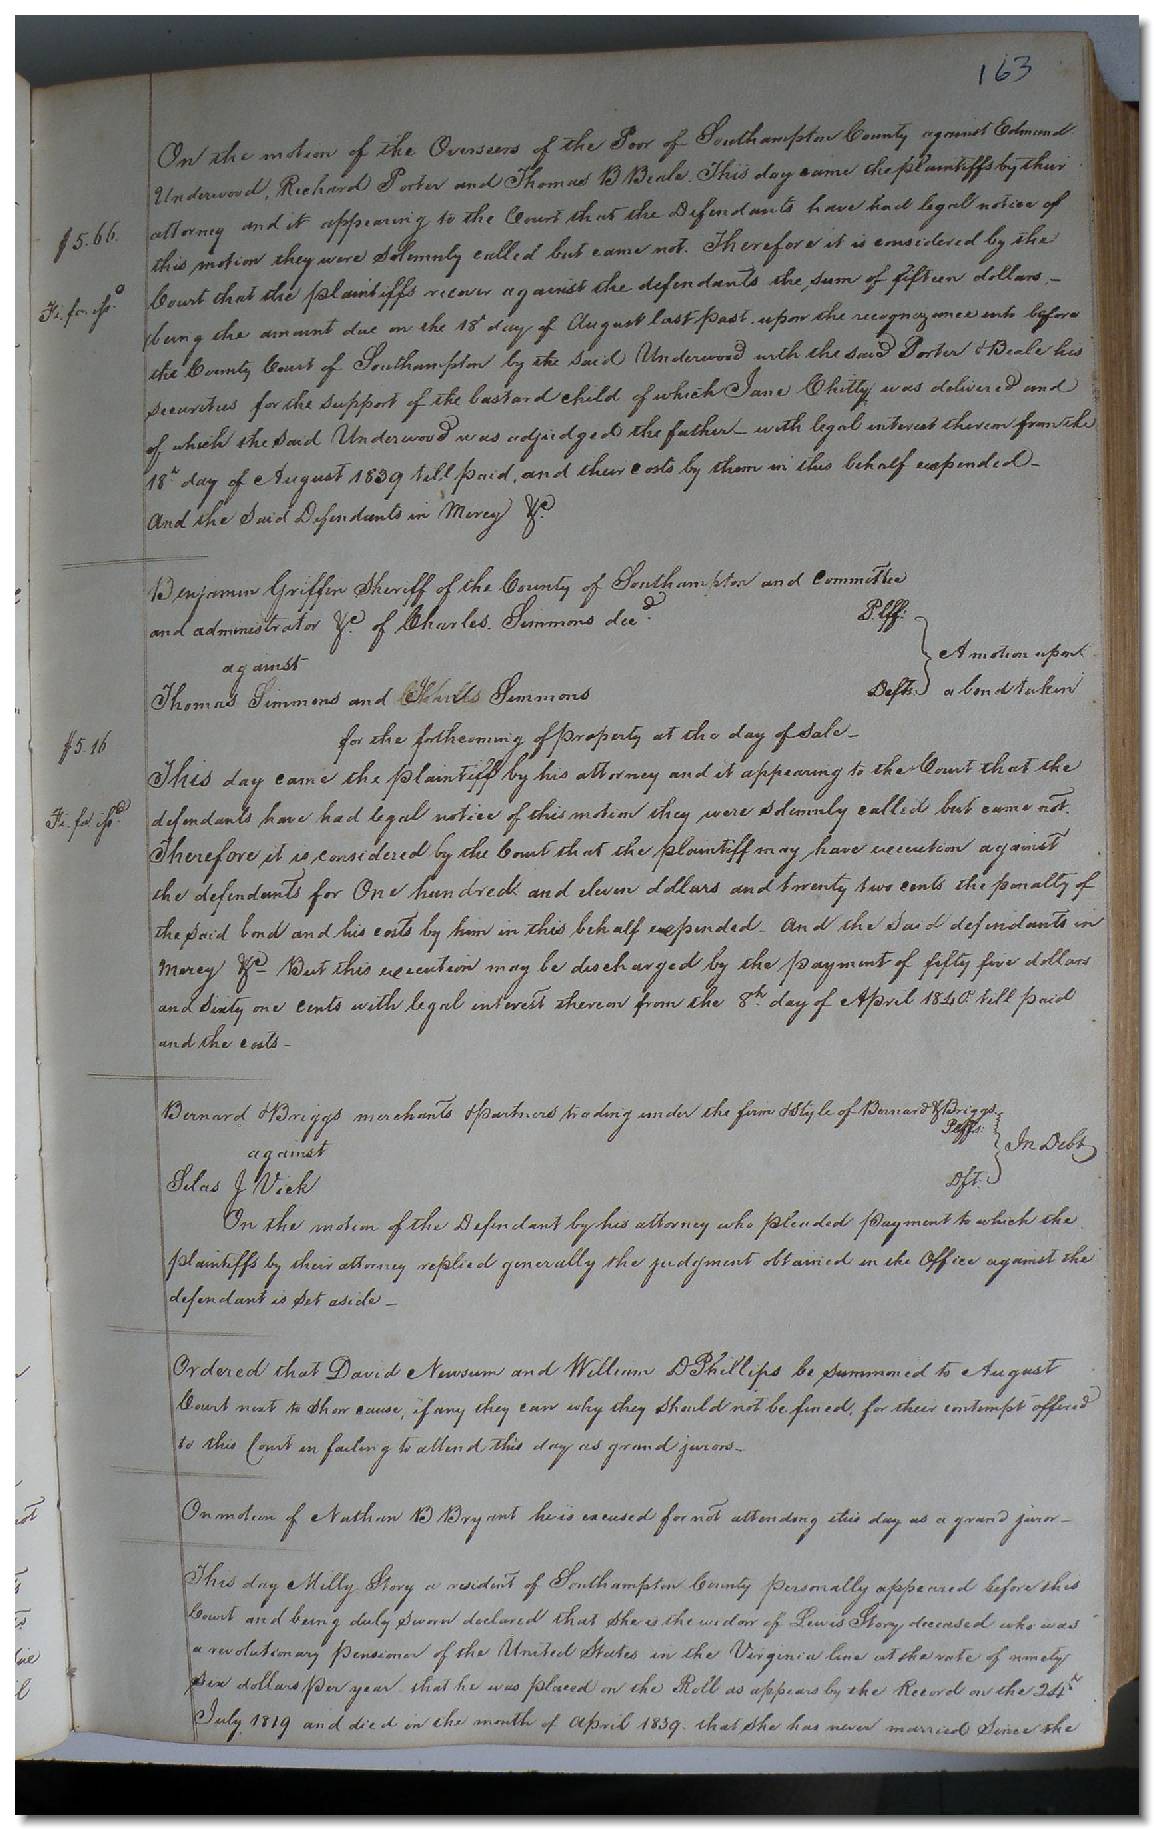 163
On the motion of the Overseers of the Poor of Southampton County against Edmund
Underwood, Richard Porter and Thomas B Beale. This day came the plaintiffs by their
attorney and it appearing to the Court that the Defendants have had legal notice of
$5.66.
this motion they were solemnly called but came not. Therefore it is considered by the
Court that the plaintiffs recover against the defendants the sum of fifteen dollars,-
Fi. fa. issd
being the amount due on the 18th day of August last past upon the recognizance into before
the County Court of Southampton by the said Underwood with the said Porter & Beale his
securities for the support of the bastard child of which Jane Chitty was delivered and
of which the said Underwood was adjudged the father- with legal interest thereon from the
18th day of August 1839 till paid, and their costs by them in this behalf expended-
And the said Defendants in Mercy &c.
Benjamin Griffin Sheriff of the County of Southampton and committee
and administrator &c. of Charles. Simmons decd. Plff.
against A motion upon
Thomas Simmons and Charles Simmons Defts. a bond taken
$5.16
for the forthcoming of property at the day of sale-
This day came the plaintiff by his attorney and it appearing to the Court that the
Fi. fa. issd.
defendants have had legal notice of this motion they were solemnly called but came not.
Therefore it is considered by the Court that the plaintiff may have execution against
the defendants for One hundred and eleven dollars and twenty two cents the penalty of
the said bond and his costs by him in this behalf expended- And the said defendants in
Mercy &c- But this execution may be discharged by the payment of fifty five dollars
and sixty one cents with legal interest thereon from the 8th. day of April 1840 till paid
and the costs-
Bernard & Briggs merchants & partners trading under the firm & style of Bernard & Briggs
Plffs.
against In Debt
Silas J Vick Dft.
On the motion of the Defendant by his attorney who pleaded payment to which the
plaintiffs by their attorney replied generally the judgment obtained in the Office against the
defendant is set aside-
Ordered that David Newsum and William D Phillips be summoned to August
Court next to show cause, if any they can why they should not be fined, for their contempt offered
to this Court in failing to attend this day as grand jurors-
On motion of Nathan B Bryant he is excused for not attending this day as a grand juror-
This day Milly Story a resident of Southampton County personally appeared before this
Court and being duly sworn declared that she is the widow of Lewis Story deceased who was
a revolutionary pensioner of the United States in the Virginia line at the rate of ninety
six dollars per year- that he was placed on the Roll as appears by the Record on the 24th
July 1819 and died in the month of April 1839. that she has never married since the